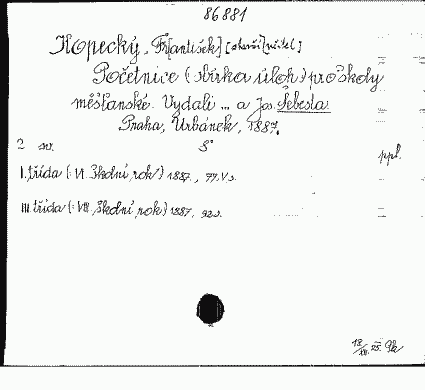 86881
Kopecký, Fr[antišek] [starší] [učitel]
Početnice (Sbírka úloh) pro školy
měšťanské. Vydali ... a Jos. Šebesta
Praha, Urbánek, 1887.
2 sv. 8° ppl.
I. třída (: VI. školní rok) 1887, 77, V s.
III. třída (: VIII. školní rok) 1887, 92 s.